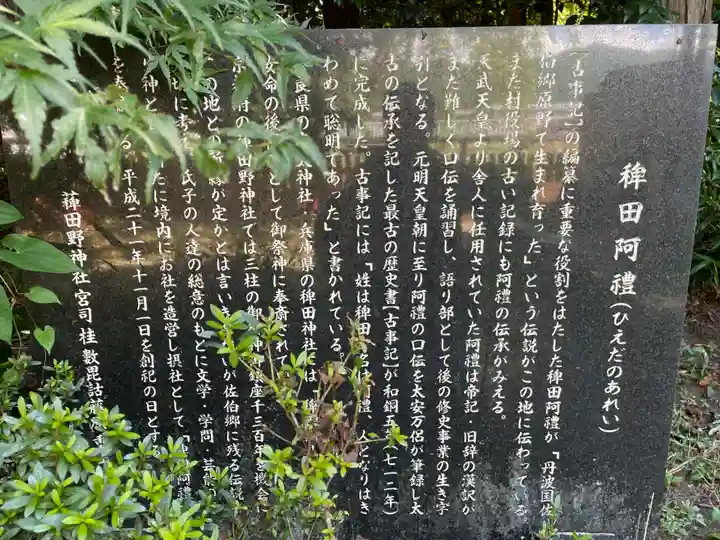 稗田阿禮(ひえだのあれい)
「古事記」の編纂に重要な役割をはたした稗田阿禮が「丹波国佐
伯郷原野で生まれ育った」という伝説がこの地に伝わっている
また村役場の古い記録にも阿禮の伝承がみえる。
天武天皇より舎人に任用されていた阿禮は帝記・旧辞の漢訳が
また難しく口伝を誦習し、語り部として後の修史事業の生き字
引となる。元明天皇朝に至り阿禮の口伝を太安万侶が筆録し太
古の伝承を記した最古の歴史書【古事記】が和銅五年(七一二年)
に完成した。古事記には「姓は稗田、名は阿禮、人となりはき
わめて聡明であった」と書かれている。
良県の 太神社・兵庫県の稗田神社 は、稗
女命の後 として御祭神に奉斎され
府の稗田野神社では三柱の御 神御鎮座千三百年を機会に
の地と 所縁が定かとは言い が佐伯郷に残る伝説
に考 氏子の人達の総意のもとに文学・学問・芸能の
神と たに境内にお社を造営し摂社として「 阿禮
を る。平成二十一年十一月一日を創祀の日とする
薭田野神社 宮司 桂 數毘詁